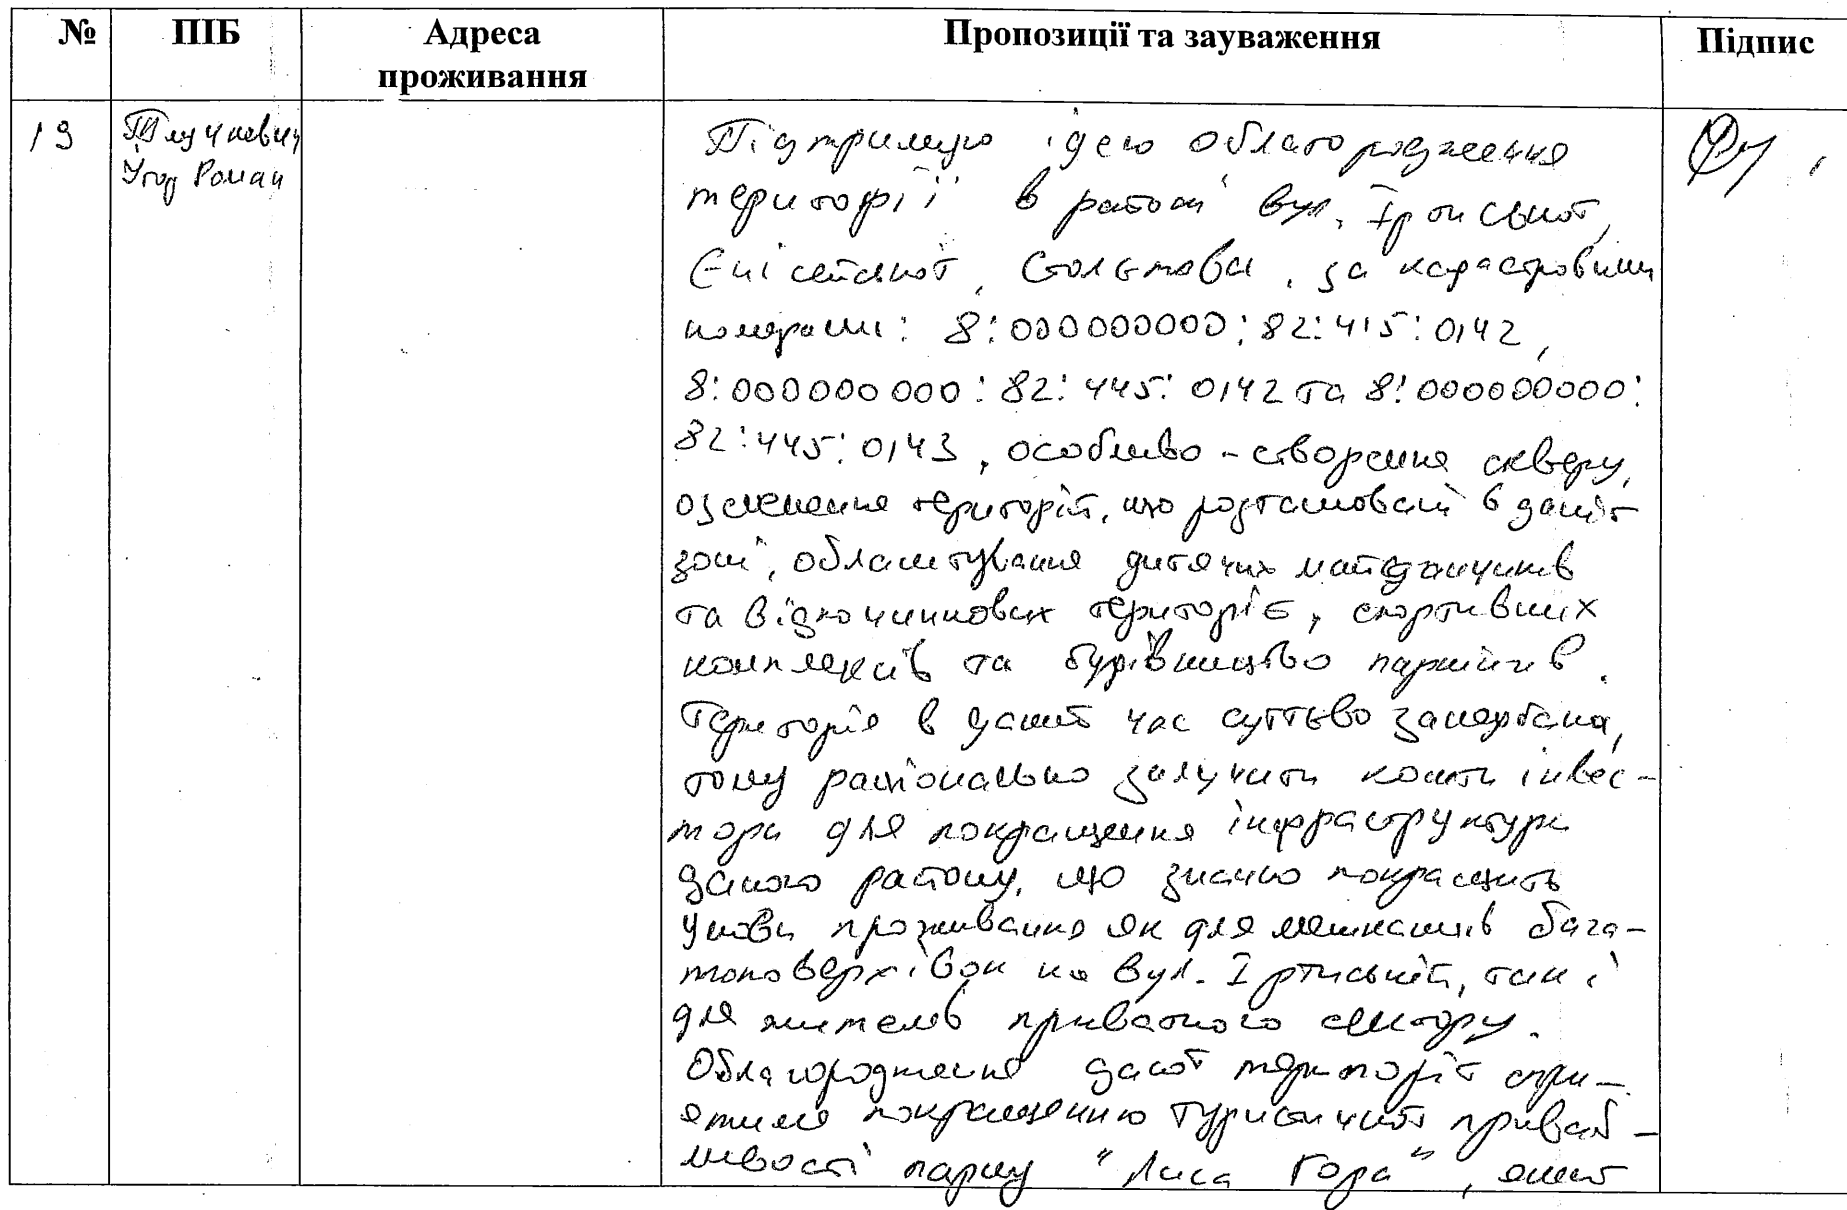 № ПІБ Адреса проживання Пропозиції та зауваження Підпис
19
Роман
Підтримую ідею облагородження
території в районі вул. Іртиської,
Єнісейської, Сольтова, за кадастровими
номерами: 8:000000000:82:415:0142,
8:000000000:82:445:0142 та 8:000000000:
82:445:0143, особливо - створення скверу,
озеленення територій, що розташовані в даній
зоні, облаштування дитячих майданчиків
та відпочинкових територій, спортивних
комплексів та будівництво паркінгів.
Територія в даний час суттєво занедбана,
тому раціонально залучити кошти інвес-
тора для покращення інфраструктури
даного району, що значно покращить
умови проживання як для мешканців бага-
топоверхівок на вул. Іртиській, так і
для жителів приватного сектору.
Облагородження даної території спри-
ятиме покращенню туристичної приваб-
ливості парку "Лиса Гора", який